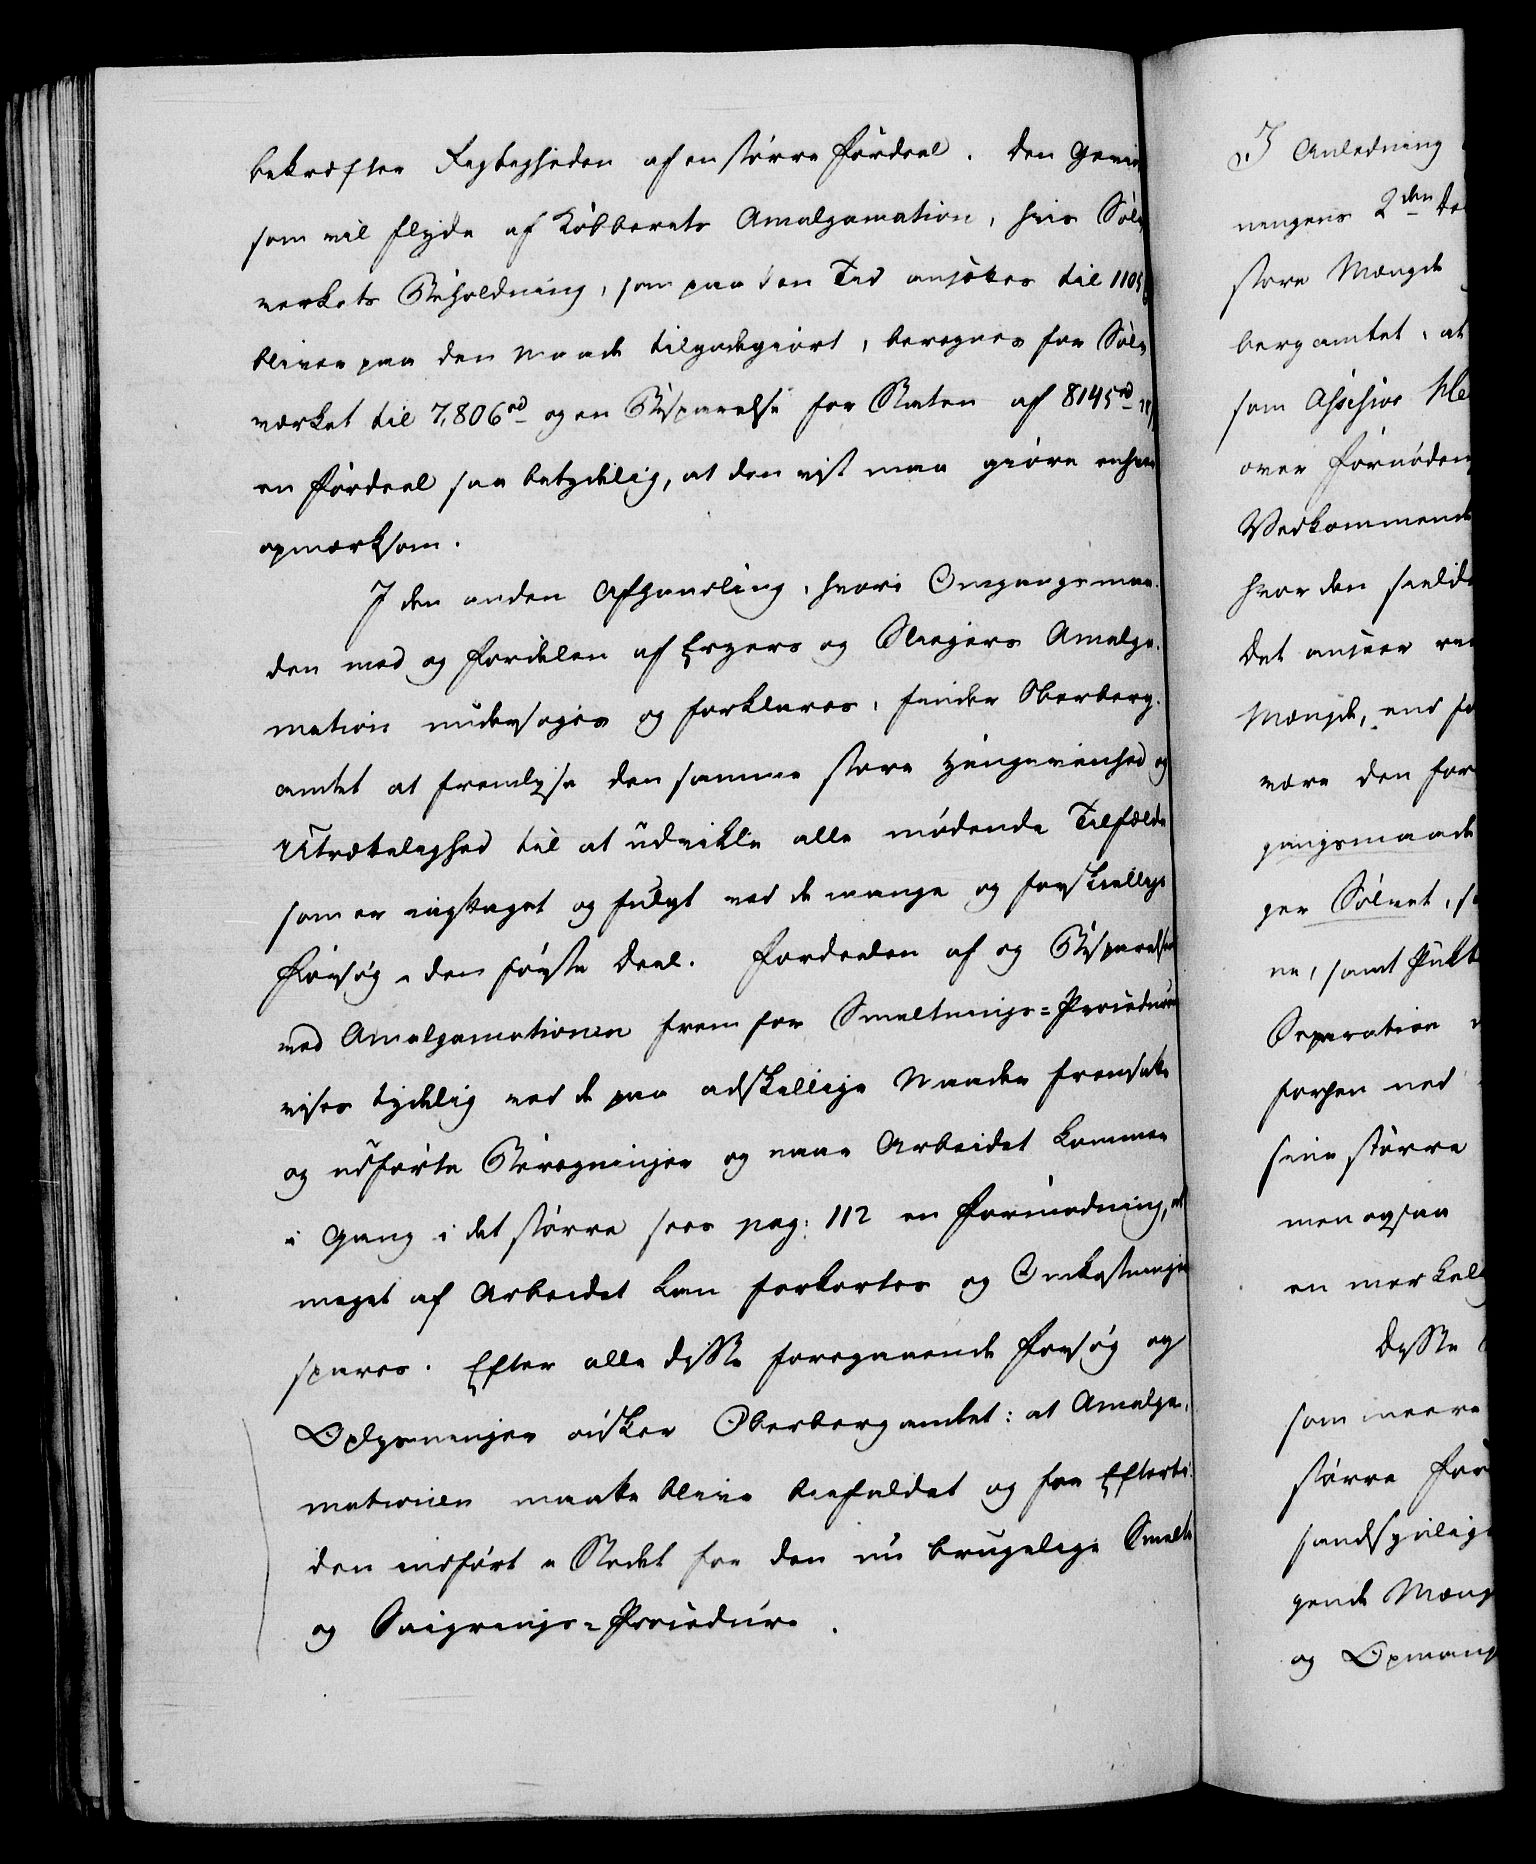 bekræfter Rigtigheden af en større Fordeel. Den Gevin
som vil flyde af Kobberets Amalgamation, hvis Søl
verkets Beholdning, som paa den Tid ansættes til 1105
bliver paa den Maade tilgodegiort, beregnes for Sølv
værket til 7,806 rd og en Besparelse for Staten af 8145 rd
en Fordeel saa betydelig, at den vist maa giøre enhver
opmerksom.
I den anden Afhandling, hvori Omgangsmaa-
den med og Fordelen af Erzers og Sliegers Amalga-
mation undersøges og forklares, finder Oberberg-
amtet at fremlyse den samme store Hengivenhed og
Utrættelighed til at udvikle alle mødende Tilfælde
som er iagttaget og fulgt ved de mange og forskiellige
Forsøg i den første Deel. Fordeelen af og Besparelsen
ved Amalgamationen frem for Smeltnings-Proceduren
vises tydelig ved de paa adskillige Maader fremsatte
og udførte Beregninger og naar Arbeidet kommer
i Gang i det større sees pag: 112 en Formodning, at
meget af Arbeidet kan forkortes og Omkostninger
spares. Efter alle disse foregaaende Forsøg og
Oplysninger ønsker Oberbergamtet: at Amalga-
mationen maatte blive biefaldet og for Efterti-
den indført i Stedet for den nu brugelige Smelte
og Saigrings-Procedure.
I Anledning
ningens 2den De
store Mængde
bergamtet, at
som Assessor
over Fornøden
Vedkommende
hvor den
Det ansees
Mængde, end fo
være den for
gangsmaade
ger Sølvet, s
ne, samt
Separation
ved
sin større
men ogsaa
en merkelig
Disse
som meere
større For
sandsynlig
gende Mæng
og Opmang